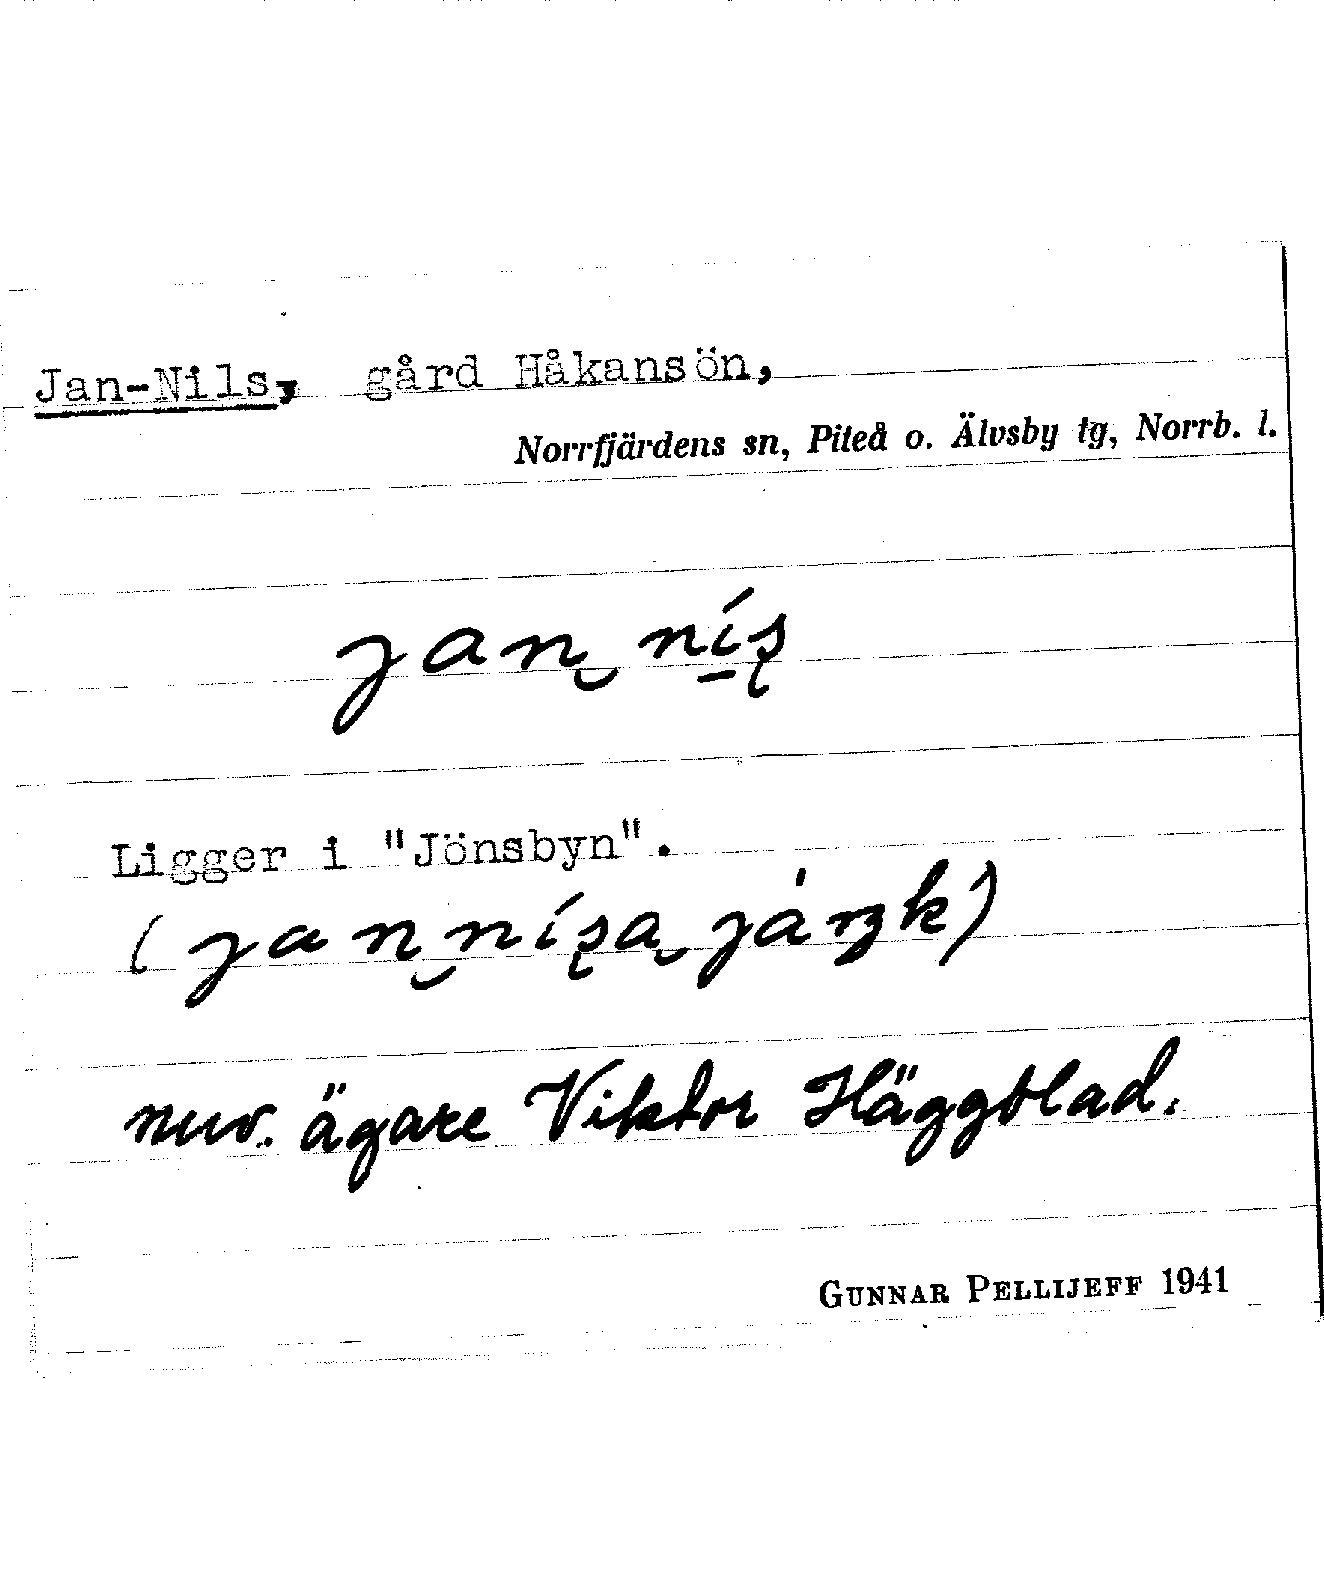 Jan-Nils, gård Håkansön,
Norrfjärdens sn, Piteå o. Älvsby tg, Norrb. l.
jan nís
Ligger i "Jönsbyn".
nuv. ägare Viktor Häggblad.
GUNNAR PELLIJEFF 1941